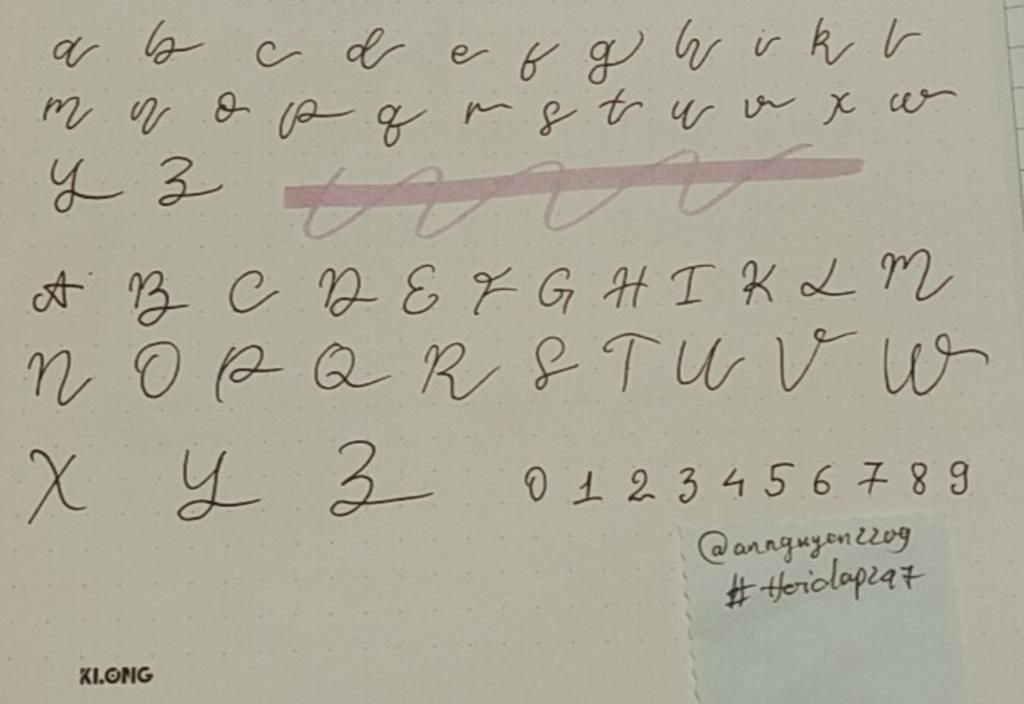 a b c d e f g h i k l
m n o p q r s t u v x w
y z
A B C D E F G H I K L M
N O P Q R S T U V W
X Y Z 0 1 2 3 4 5 6 7 8 9
@annguyen2209
#Hoidap247
KLONG